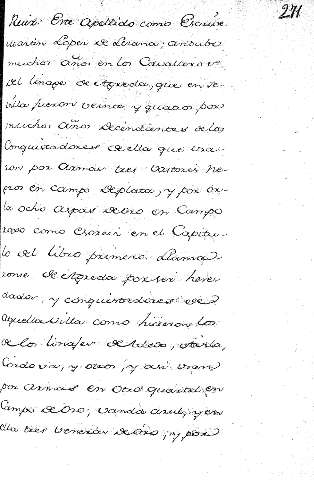 271
Ruiz: Este Apellido como Escrive
martin Lopez de Lezana; andubo
muchos años en los Cavalleros
del linage de Agreda, que en Se-
villa fueron veinte y quatro por
muchos Años Decendientes de los
Conquistadores de ella que usa-
ron por Armas tres bastones Ne-
gros en campo de plata, y por or-
la ocho aspas de oro en Campo
roxo como escrivi en el Capitu-
lo del libro primero. Llama
ronse de Agreda por ser here
dados, y conquistadores de
Aquella villa como hicieron los
de los linages de Ubeda, Avila,
Cordova, y otros, y asi usan
por Armas en otro quartel, en
Campo de Oro, vanda azul, y en
ella tres veneras de Oro, y por